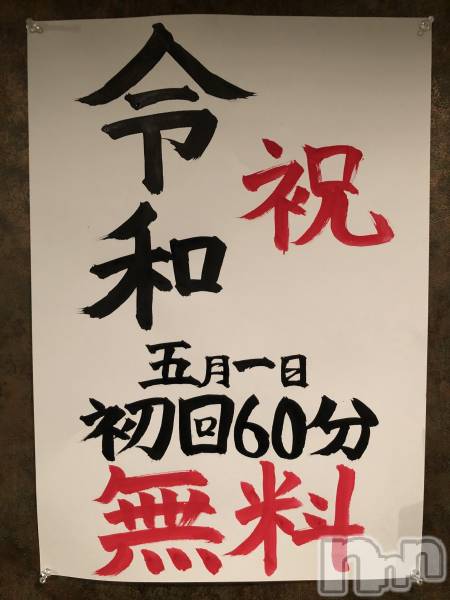 令和
祝
五月一日
初回60分
無料